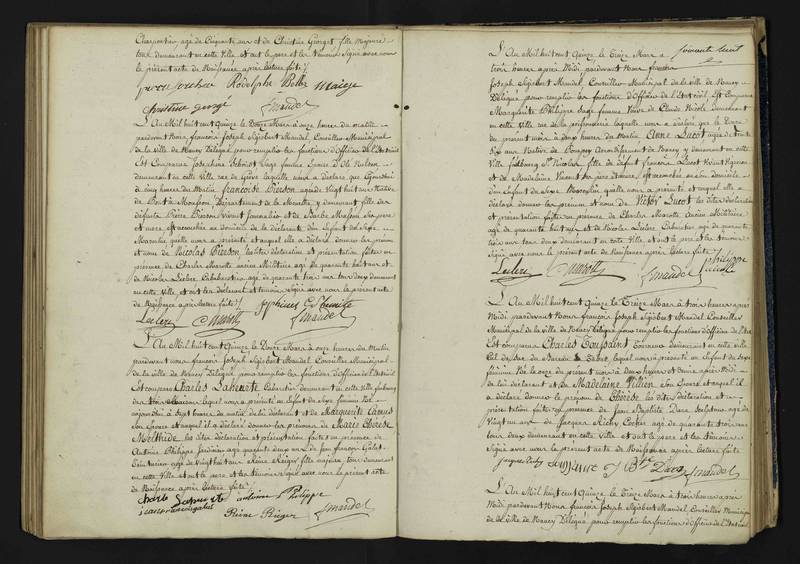 Charpentier, agé de Cinquante un et de Christine Georget fille Majeure
tous demeurant en cette Ville et ont le pere et les temoins signé avec nous
le présent acte de Naissance après lecture faite /.
Rodolphe Beller
Christine georgé Mandel
L'An Mil huit cent Quinze le Douze Mars à onze heures du matin
pardevant Nous françois Joseph Sigisbert Mandel, Conseiller Municipal
de la ville de Nancy Délégué pour remplir les fonctions d'Officier de l'Etat civil
Est Comparue Josephine
demeurant en cette Ville rue de Grève laquelle nous a déclaré que
à cinq heures du Matin françoise Pierson agée de Vingt huit ans Native
de Pont à Mousson, Département de la Meurthe, y demeurant fille des
défunts Pierre Pierson Vivant Journalier et de Barbe Masson ses pere
et mere, est accouchée au domicile de la déclarante d'un Enfant du Sexe
Masculin quelle nous a présenté et auquel elle a déclaré donner les prénom
et nom de Nicolas Pierson les dites déclaration et présentation faites en
présence de Charles Marotte ancien Militaire agé de quarante huit ans et
de Nicolas Leclerc Cabaretier, agé de quarante trois ans tous deux demeurant
en cette Ville, et ont les déclarant et témoins, signé avec nous le présent acte
de Naissance après lecture faite /.
Leclerc C Marotte Mandel
L'An Mil huit cent Quinze le Douze Mars à onze heures du Matin
pardevant nous françois Joseph Sigisbert Mandel Conseiller Municipal
de la ville de Nancy Délégué pour remplir les fonctions d'Officier de l'Etat civil
Est comparu Charles Laheurte Cabaretier demeurant en cette Ville faubourg
des trois Maisons lequel nous a présenté un Enfant du Sexe feminin Né
aujourdhui à Sept heures du matin de lui déclarant et de Marguerite Camus
son Epouse et auquel il a déclaré donner les prénoms de Marie Thérèse
Melthilde les dites déclaration et présentation faites en présence de
Antoine Philippe Jardinier agé quarante deux ans de jean françois Galet
agé de Vingt huit ans Reine Reiger fille majeure tous demeurant
en cette Ville et ont le pere et les temoins signé avec nous le présent acte
de Naissance après lecture faite /.
Charle antoine Philippe
Reine Rieger Mandel
Soixante huit
L'An Mil huit cent Quinze le Treize Mars à
trois heures après Midi pardevant Nous françois
Joseph Sigisbert Mandel, Conseiller Municipal de la ville de Nancy
Délégué pour remplir les fonctions d'Officier de l'Etat civil Est Comparue
Marguerite Philippe Sage femme Veuve de Claude Nicole demeurant
en cette Ville rue de la poissonnerie laquelle nous a déclaré que le Douze
du présent mois à deux heures du Matin Anne Lucot agée de trente
Six ans Native de Pompey Arrondissement de Nancy y demeurant en cette
Ville faubourg St Nicolas fille de défunt françois Lucot Vivant Vigneron
et de Madelaine Vincent ses pere et mere, est accouchée en son domicile
d'un Enfant du Sexe Masculin quelle nous a présenté et auquel elle a
déclaré donner les prénom et nom de Victor Lucot les dites déclaration
et présentation faites en présence de Charles Marotte ancien Militaire
agé de quarante huit ans et de Nicolas Leclerc Cabaretier agé de quarante
trois ans tous deux demeurant en cette Ville et ont
signé avec nous le présent acte de Naissance après lecture faite /.
Leclerc C Marotte Mandel philippe
L'An Mil huit cent Quinze le Treize Mars à trois heures après
Midi pardevant Nous françois Joseph Sigisbert Mandel Conseiller
Municipal de la ville de Nancy Délégué pour remplir les fonctions d'Officier de l'Etat
Est comparu Charles Toussaint demeurant en cette Ville
lequel nous a présenté un Enfant du Sexe
feminin Né le onze du présent mois à deux heures et demie après Midi
de lui déclarant et de Madelaine son Epouse et auquel il
a déclaré donner le prénom de Thérèse les dites déclaration et
présentation faites en présence de Jean Baptiste Sculpteur agé de
Vingt neuf ans de Jacques Richy Cocher agé de quarante trois ans
tous deux demeurant en cette Ville et ont le pere et les temoins
signé avec nous le présent acte de Naissance après lecture faite
Jacques Richy Toussaint Mandel
L'An Mil huit cent Quinze le Treize Mars à trois heures après
Midi pardevant Nous françois Joseph Sigisbert Mandel, Conseiller Municipal
de la Ville de Nancy Délégué pour remplir les fonctions d'Officier de l'Etat civil